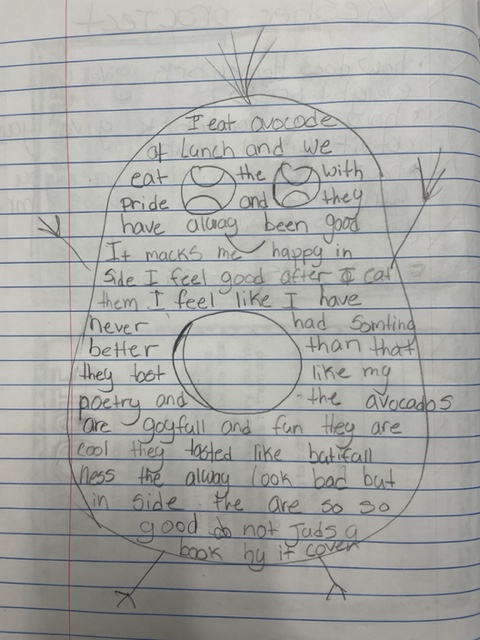 I eat avocode
at Lunch and we
eat the with
pride and they
have alway been good
It macks me happy in
side I feel good after I eat
them I feel like I have
never had somting
better than that
they tost like my
poetry and the avocados
are goyfull and fun they are
cool they tasted like batifall
ness the alway look bad but
in side the are so so
good do not Juds a
book by it cover